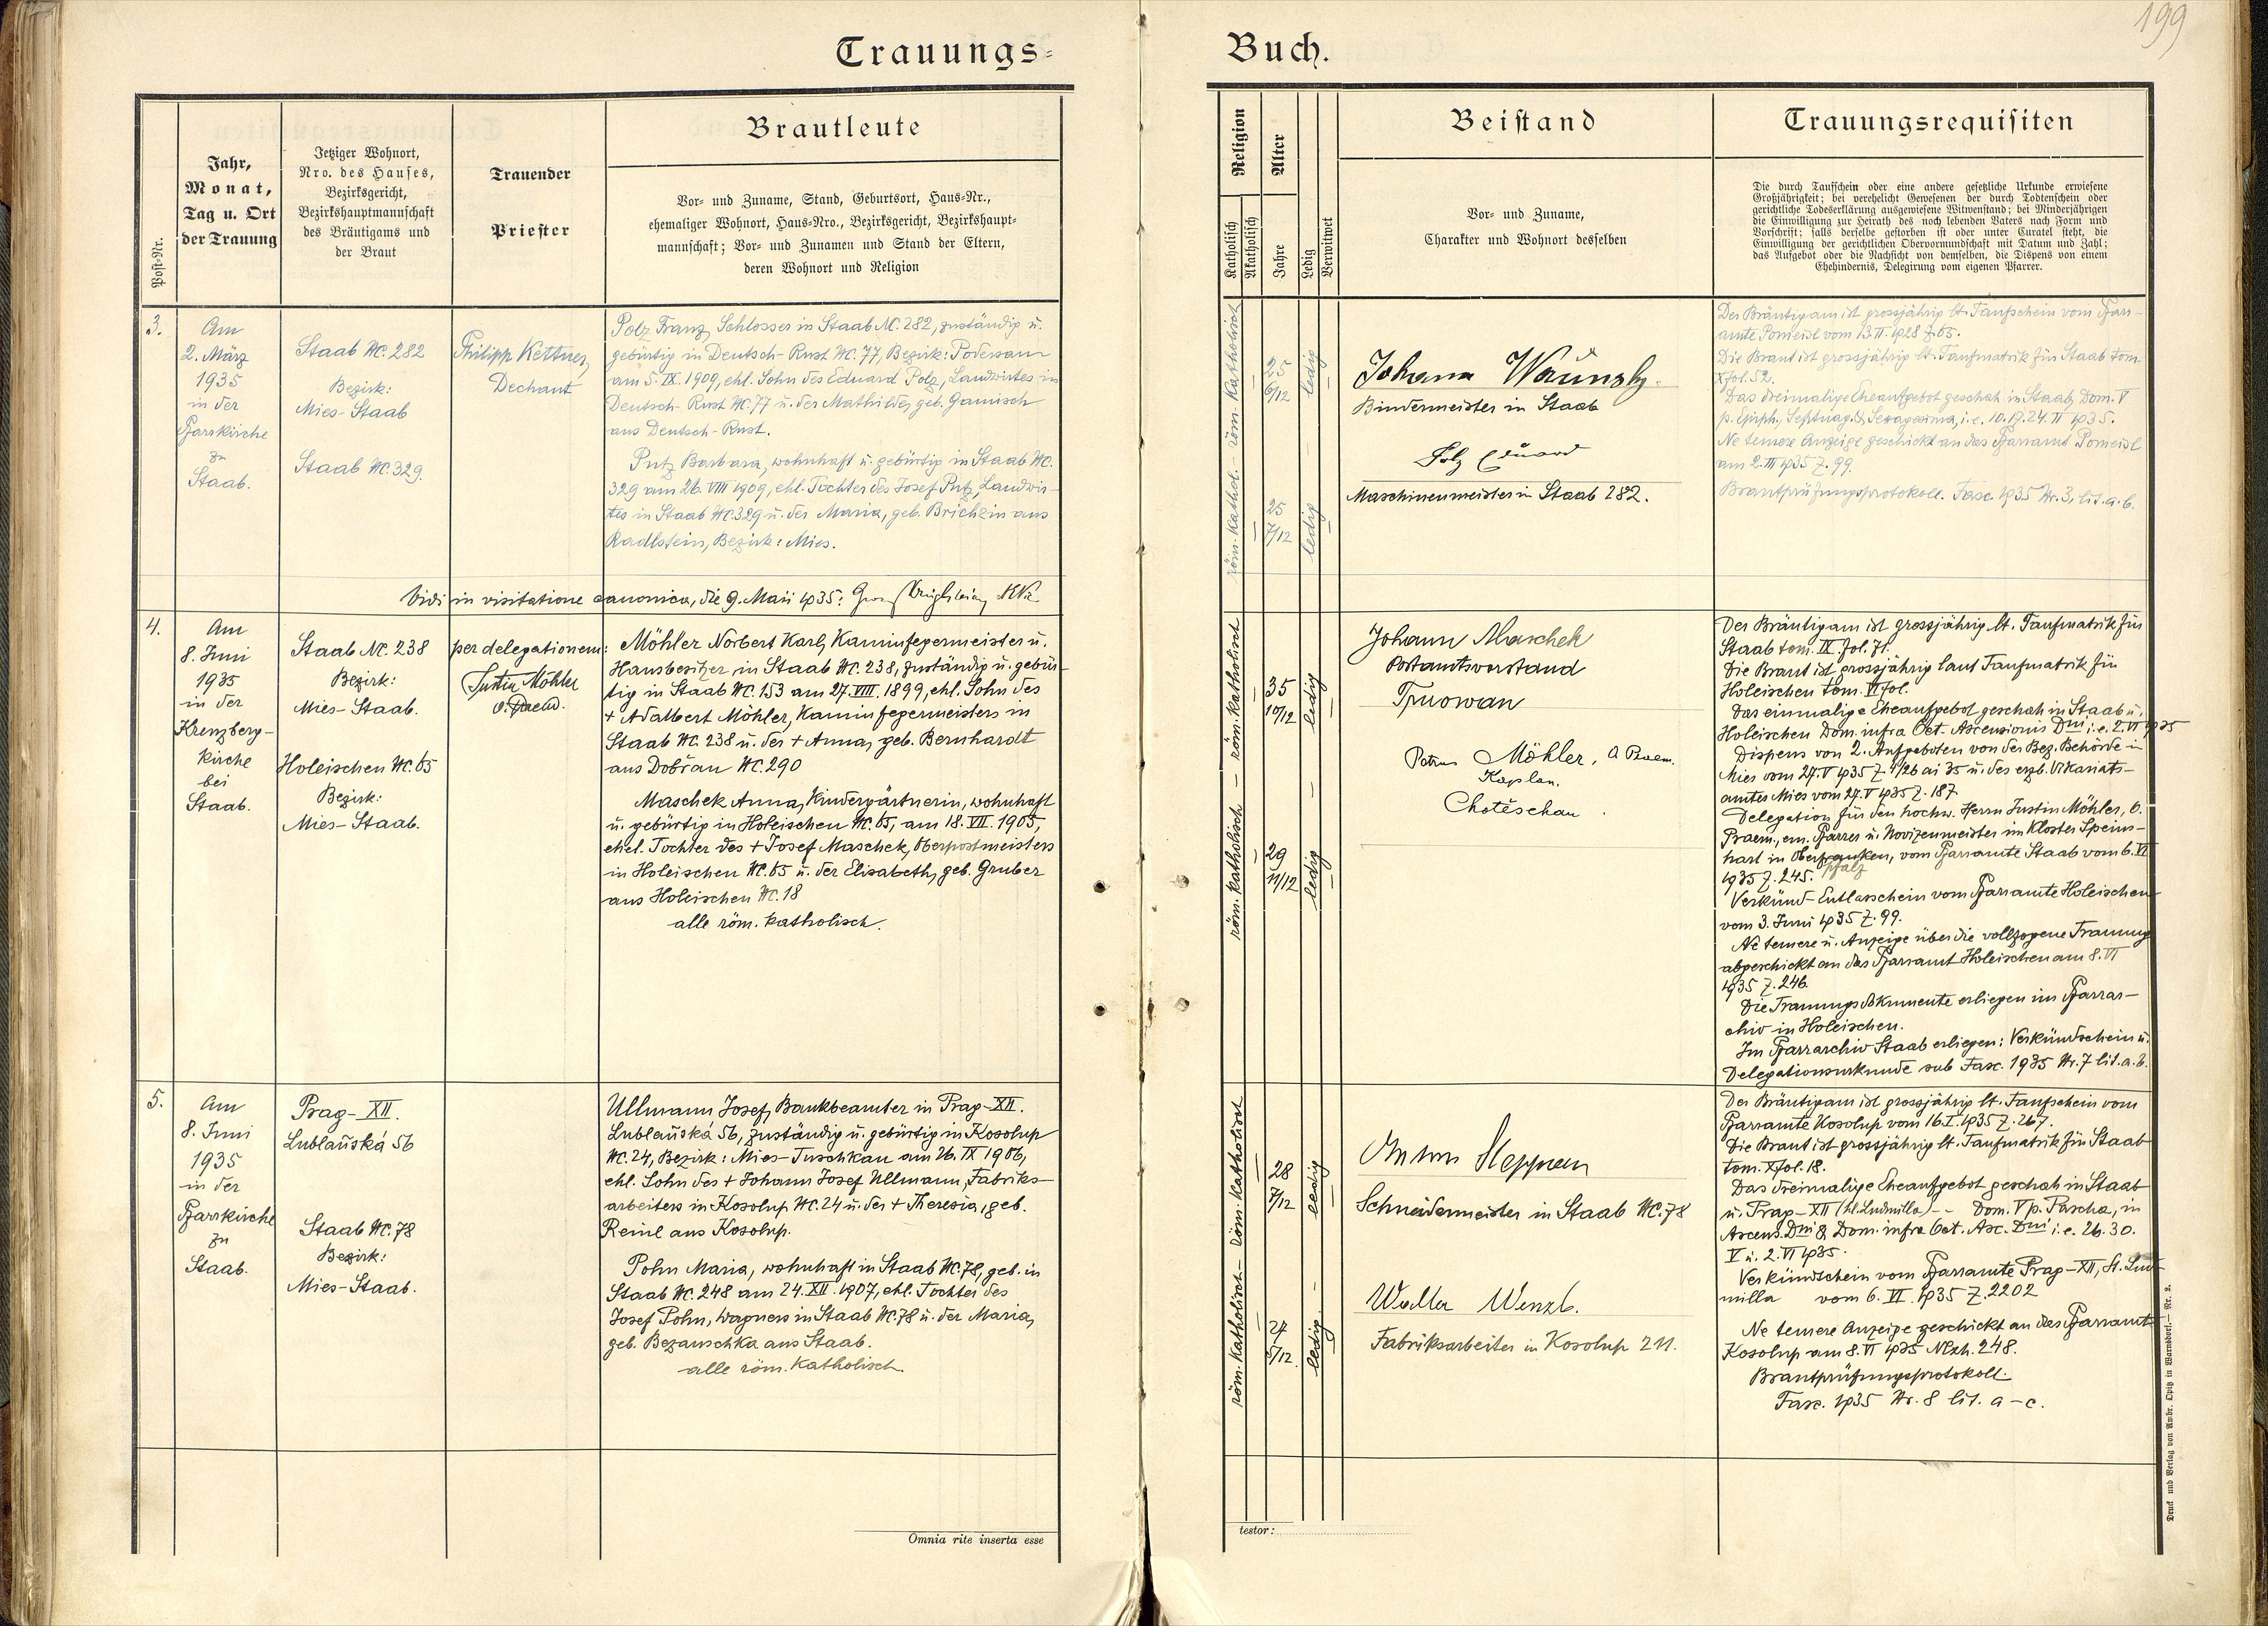 199
Trauungs-
Buch.
Post-Nr.
Jahr,
Monat,
Tag u. Ort
der Trauung
Jetziger Wohnort,
Nro. des Hauses,
Bezirksgericht,
Bezirkshauptmannschaft
des Bräutigams und
der Braut
Trauender
Priester
Brautleute
Vor- und Zuname, Stand, Geburtsort, Haus-Nr.,
ehemaliger Wohnort, Haus-Nro., Bezirksgericht, Bezirkshaupt-
mannschaft; Vor- und Zunamen und Stand der Eltern,
deren Wohnort und Religion
Religion
Katholisch
Akatholisch
Alter
Jahre
Ledig
Verwitwet
Beistand
Vor- und Zuname,
Charakter und Wohnort desselben
Trauungsrequisiten
Die durch Taufschein oder eine andere gesetzliche Urkunde erwiesene
Großjährigkeit; bei verehelicht Gewesenen der durch Todtenschein oder
gerichtliche Todeserklärung ausgewiesene Witwenstand; bei Minderjährigen
die Einwilligung zur Heirath des noch lebenden Vaters nach Form und
Vorschrift; falls derselbe gestorben ist oder unter Curatel steht, die
Einwilligung der gerichtlichen Obervormundschaft mit Datum und Zahl;
das Aufgebot oder die Nachsicht von demselben, die Dispens von einem
Ehehindernis, Delegirung vom eigenen Pfarrer.
3.
Am
2. März
1935
in der
Pfarrkirche
zu
Staab.
Staab NC. 282
Bezirk:
Mies-Staab
Staab NC. 329.
Philipp Kettner,
Dechant
Polz Franz, Schlosser in Staab NC. 282, zuständig u.
gebürtig in Deutsch-Rust NC. 77, Bezirk: Podersam
am 5. IX. 1909, ehl. Sohn des Eduard Polz, Landwirtes in
Deutsch-Rust NC. 77 u. der Mathilde, geb. Gamisch
aus Deutsch-Rust.
Putz Barbara, wohnhaft u. gebürtig in Staab NC.
329 am 26. VIII 1909, ehl. Tochter des Josef Putz, Landwir-
tes in Staab NC. 329 u. der Maria, geb. Brichzin aus
Radlstein, Bezirk: Mies.
röm. kathol. – röm. katholisch
25
6/12
ledig
25
7/12
ledig
Johann
Bindermeister in Staab
Polz Eduard
Maschinenmeister in Staab 282.
Der Bräutigam ist grossjährig lt. Taufschein vom Pfarr-
amte Pomeisl vom 13. II. 1928 Z. 65.
Die Braut ist grossjährig lt. Taufmatrik für Staab tom.
X fol. 52.
Das dreimalige Eheaufgebot geschah in Staab, Dom. V
p. Epiph., Septuag. & Sexagesima, i. e. 10. 17. 24. II 1935.
Ne temere Anzeige geschickt an das Pfarramt Pomeisl
am 2. III 1935 Z. 99.
Brautprüfungsprotokoll. Fasc. 1935 Nr. 3, lit. a. b.
Vidi in visitatione canonica, die 9. Maii 1935:
4.
Am
8. Juni
1935
in der
Kreuzberg-
kirche
bei
Staab.
Staab NC. 238
Bezirk:
Mies-Staab.
Holeischen NC. 65
Bezirk:
Mies-Staab.
per delegationem:
Justin Möhler
o. Praem.
Möhler Norbert Karl, Kaminfegermeister u.
Hausbesitzer in Staab NC. 238, zuständig u. gebür-
tig in Staab NC. 153 am 27. VIII. 1899, ehl. Sohn des
+ Adalbert Möhler, Kaminfegermeisters in
Staab NC. 238 u. der + Anna, geb. Bernhardt
aus Dobřan NC. 290
Maschek Anna, Kindergärtnerin, wohnhaft
u. gebürtig in Holeischen NC. 65, am 18. VII. 1905,
ehel. Tochter des + Josef Maschek, Oberpostmeisters
in Holeischen NC. 65 u. der Elisabeth, geb. Gruber
aus Holeischen NC. 18
alle röm. katholisch.
röm. katholisch – röm. katholisch
35
10/12
ledig
29
11/12
ledig
Johann Maschek
Postamtsvorstand
Petrus Möhler, O. Praem.
Kaplan.
Chotěschau
Der Bräutigam ist grossjährig lt. Taufmatrik für
Staab tom. IX. fol. 71.
Die Braut ist grossjährig laut Taufmatrik für
Holeischen tom. VI fol.
Das einmalige Eheaufgebot geschah in Staab u.
Holeischen Dom. infra Oct. Ascensionis Dni i. e. 2. VI 1935
Dispens von 2. Aufgeboten von der Bez. Behörde in
Mies vom 27. V 1935 Z. 4/26 ai 35 u. des erzb. Vikariats-
amtes Mies vom 27. V 1935 Z. 187.
Delegation für den hochw. Herrn Justin Möhler, O.
Praem., em. Pfarrer u. Novizenmeister im Kloster Speins-
hart in Oberfranken, vom Pfarramte Staab vom 6. VI
pfalz
1935 Z. 245.
Verkünd-Entlasschein vom Pfarramte Holeischen
vom 3. Juni 1935 Z. 99.
Ne temere u. Anzeige über die vollzogene Trauung
abgeschickt an das Pfarramt Holeischen am 8. VI
1935 Z. 246.
Die Trauungsdokumente erliegen im Pfarrar-
chiv in Holeischen.
Im Pfarrarchiv Staab erliegen: Verkündschein u.
Delegationsurkunde sub Fasc. 1935 Nr. 7 lit. a. b.
5.
Am
8. Juni
1935
in der
Pfarrkirche
zu
Staab.
Prag-XII.
Lublaňská 56
Staab NC. 78
Bezirk:
Mies-Staab.
Ullmann Josef, Bankbeamter in Prag-XII.
Lublaňská 56, zuständig u. gebürtig in Kosolup
NC. 24, Bezirk: Mies-Tuschkau am 26. IX 1906,
ehl. Sohn des + Johann Josef Ullmann, Fabriks-
arbeiters in Kosolup NC. 24 u. der + Theresia, geb.
Reinl aus Kosolup.
Pohn Maria, wohnhaft in Staab NC. 78, geb. in
Staab NC. 248 am 24. XII. 1907, ehl. Tochter des
Josef Pohn, Wagners in Staab NC. 78 u. der Maria,
geb. Bezauschka aus Staab.
alle röm. katholisch.
röm. katholisch – röm. katholisch
28
7/12
ledig
27
5/12.
ledig
Anton
Schneidermeister in Staab NC. 78
Walter Wenzl.
Fabriksarbeiter in Kosolup 211.
Der Bräutigam ist grossjährig lt. Taufschein vom
Pfarramte Kosolup vom 16. I. 1935 Z. 267.
Die Braut ist grossjährig lt. Taufmatrik für Staab
tom. X fol. 18.
Das dreimalige Eheaufgebot geschah in Staab
u. Prag-XII (hl. Ludmilla) -- Dom. V p. Pascha, in
Ascens. Dni & Dom. infra Oct. Asc. Dni i. e. 26. 30.
V u. 2. VI 1935.
Verkündschein vom Pfarramte Prag-XII, St. Lud-
milla vom 6. VI. 1935 Z. 2202
Ne temere Anzeige geschickt an das Pfarramt
Kosolup am 8. VI 1935 Nexh. 248.
Brautprüfungsprotokoll.
Fasc. 1935 Nr. 8 lit. a – c.
Omnia rite inserta esse
testor:
Druck und Verlag von Ambr. Opitz in Warnsdorf. — Nr. 2.